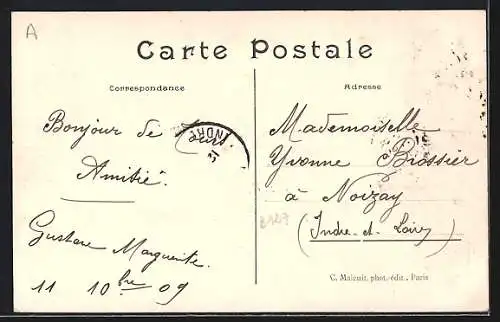 A
Carte Postale
Correspondance
Adresse
Bonjour de Tours
Amitié.
Gustave Marguerite.
11 10bre 09
INDRE
Mademoiselle
Yvonne Brossier
à Noizay
(Indre-et-Loire)
C. Malcuit, phot.-édit., Paris